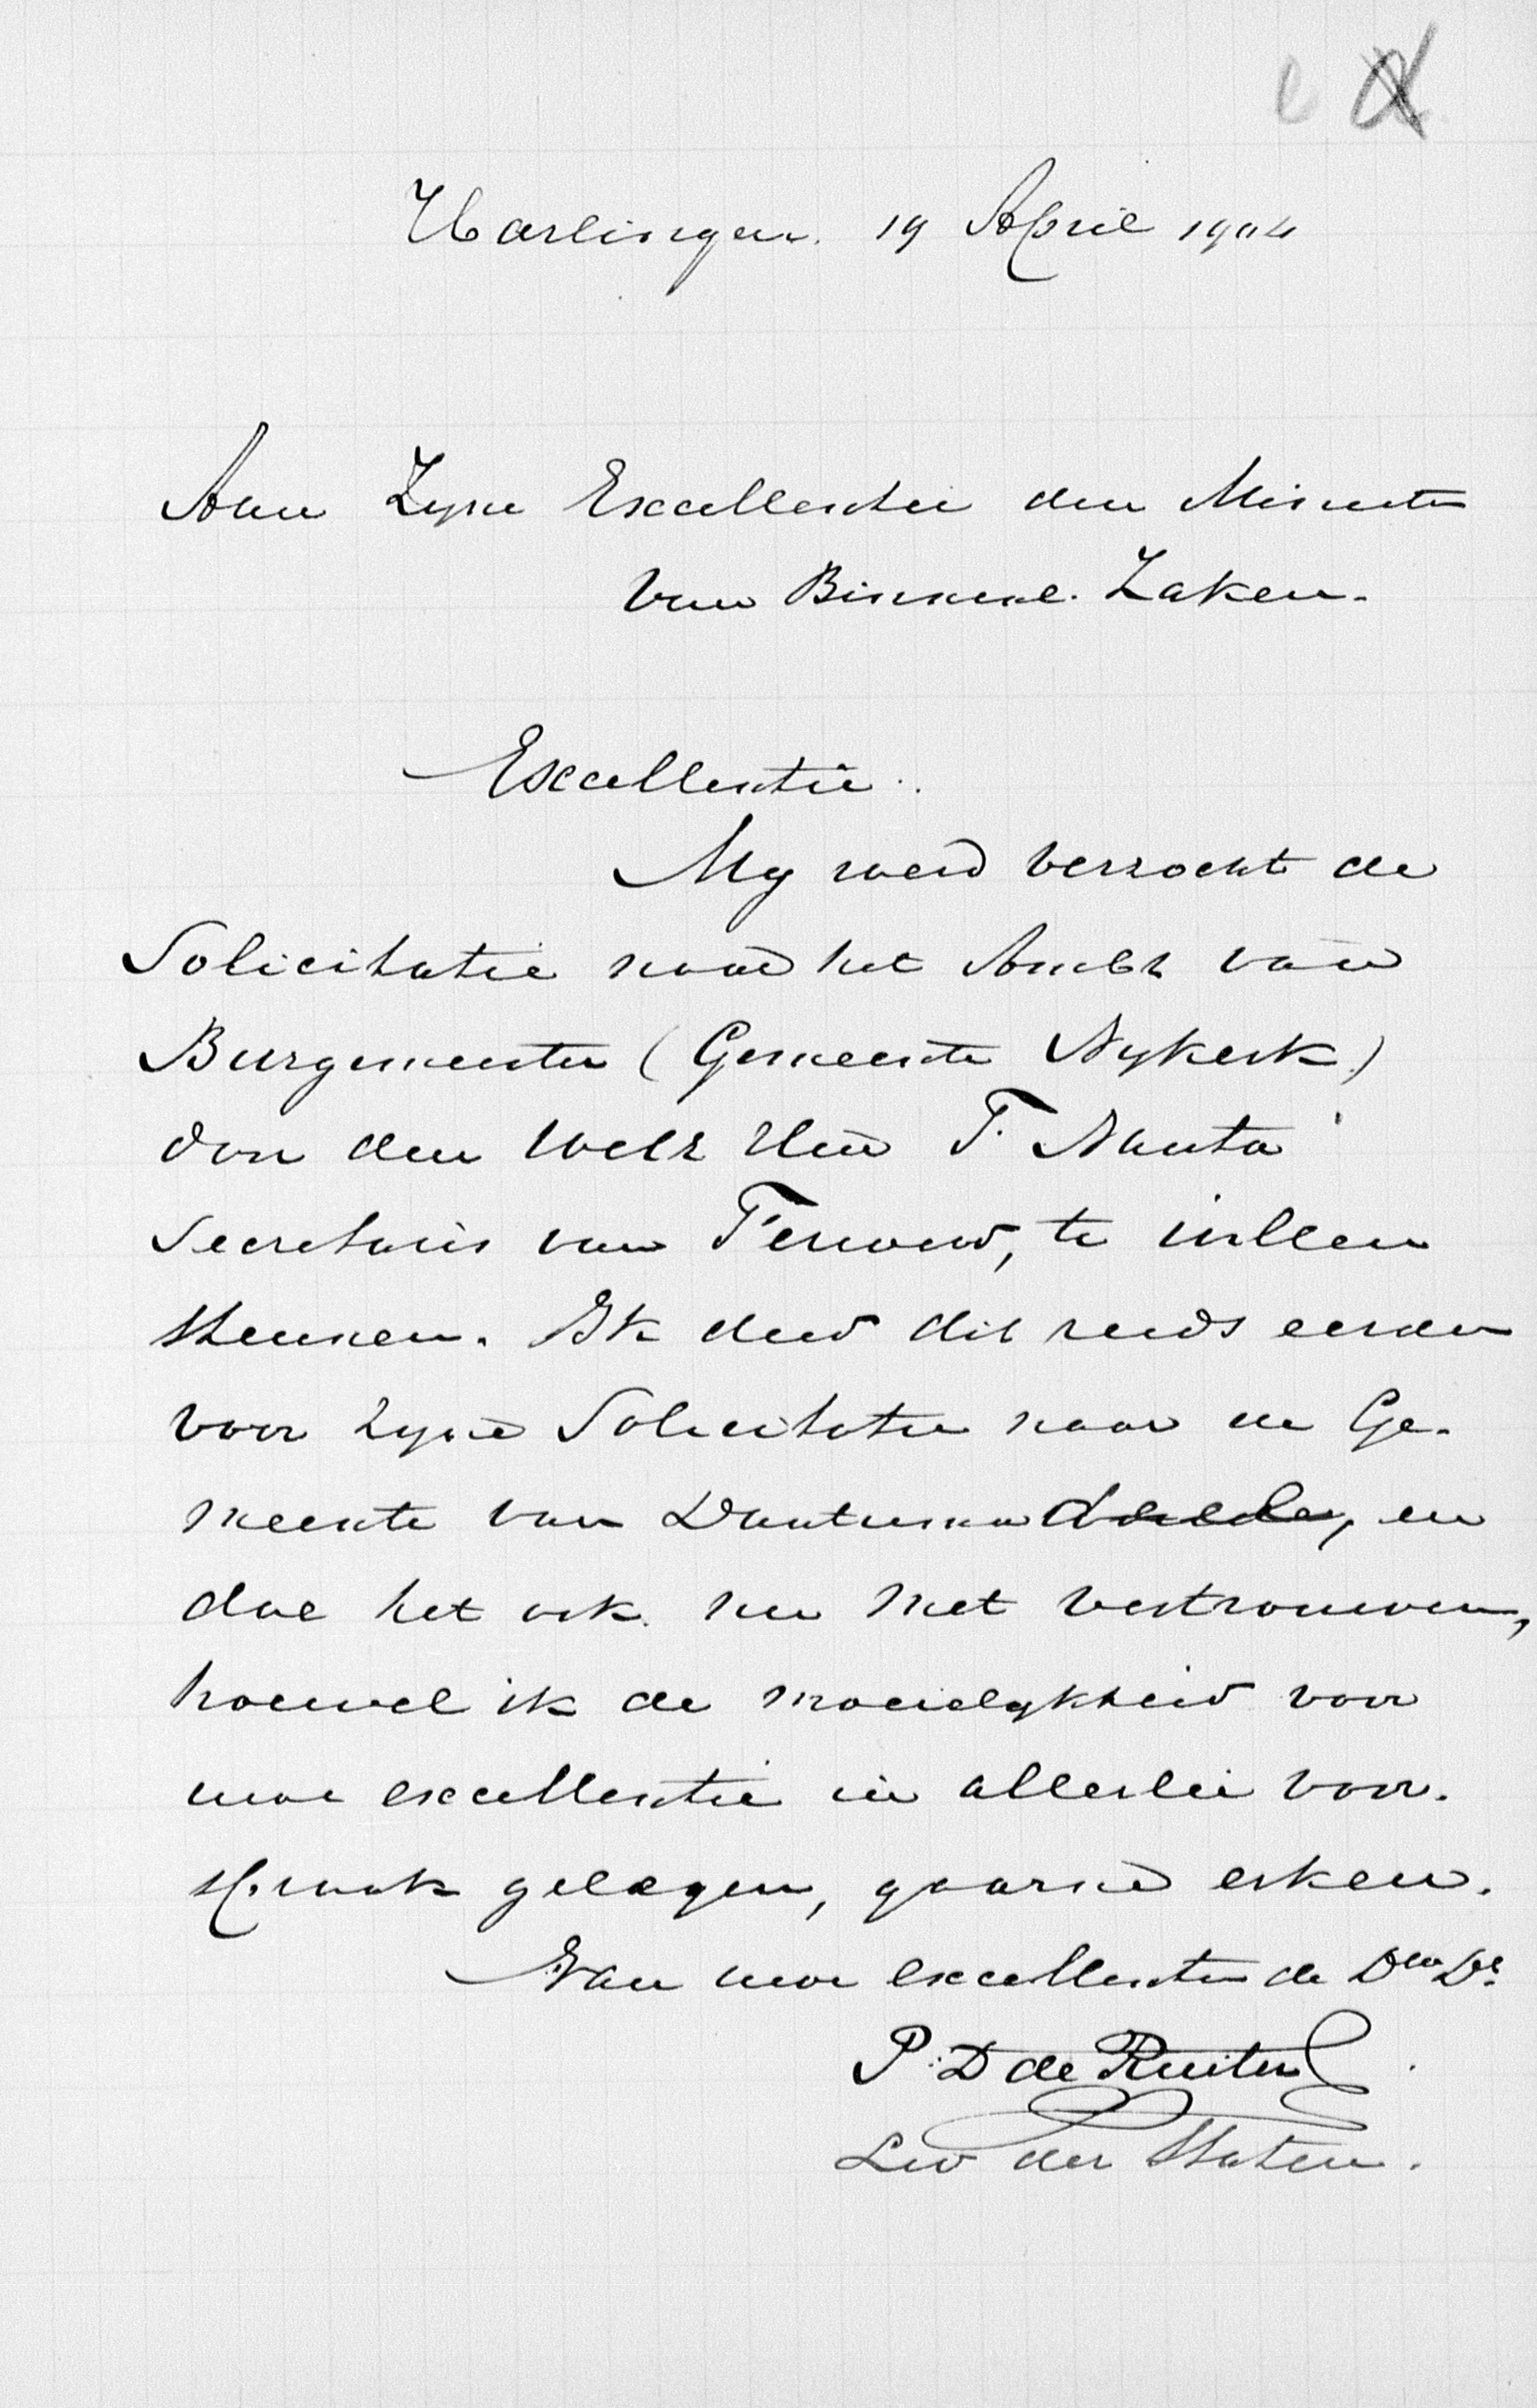 Harlingen. 19 April 1904
Aan Zyne Excellentie den Minister
van Binnenl. Zaken.
Excellentie.
My werd verzocht de
Solicitatie naar het Ambt van
Burgemeester (Gemeente Nykerk)
don den WelEd Heer T. Nauta
Secretaris van Ferwerd, te willen
steunen. Ik deed dit reeds eerder
voor zyne Solicitatie naar de Ge-
meente van Dantumadeele, en
doe het ook nu met vertrouwen,
hoewel ik de moeielykheid voor
uwe excellentie in allerlei voor-
spraak gelegen, gaarne erken.
Van uwe excellentie de Dw Dr
P. D de Ruiter
Lid der Staten.